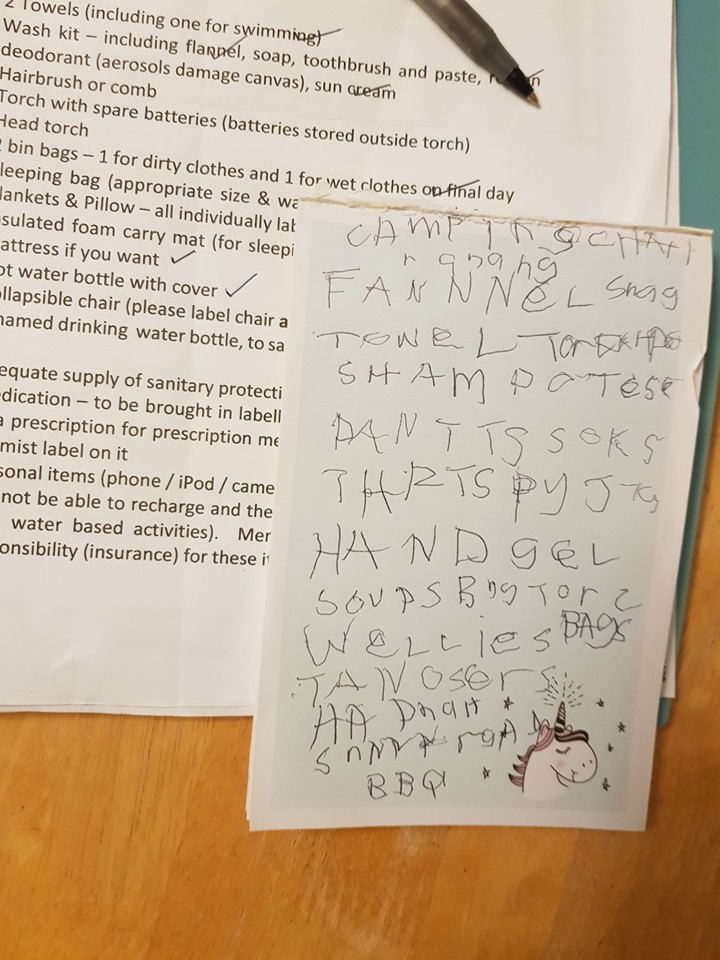 2 Towels (including one for swimming)
Wash kit – including flannel, soap, toothbrush and paste,
deodorant (aerosols damage canvas), sun cream
Hairbrush or comb
Torch with spare batteries (batteries stored outside torch)
Head torch
2 bin bags – 1 for dirty clothes and 1 for wet clothes on final day
leeping bag (appropriate size & wa
lankets & Pillow – all individually lab
sulated foam carry mat (for sleepi
attress if you want ✓
ot water bottle with cover ✓
llapsible chair (please label chair a
named drinking water bottle, to sa
equate supply of sanitary protecti
dication – to be brought in labell
a prescription for prescription me
mist label on it
sonal items (phone / iPod / came
not be able to recharge and the
water based activities). Mer
onsibility (insurance) for these it
CAMPINgCHAH
FANNNEL Snag
TOWEL
SHAMPO
PANTTS SOKS
THRTS PYJ
HAND gEL
SOUPS Bng Torc
WELLies BAgS
TANOSers
HA
BBQ